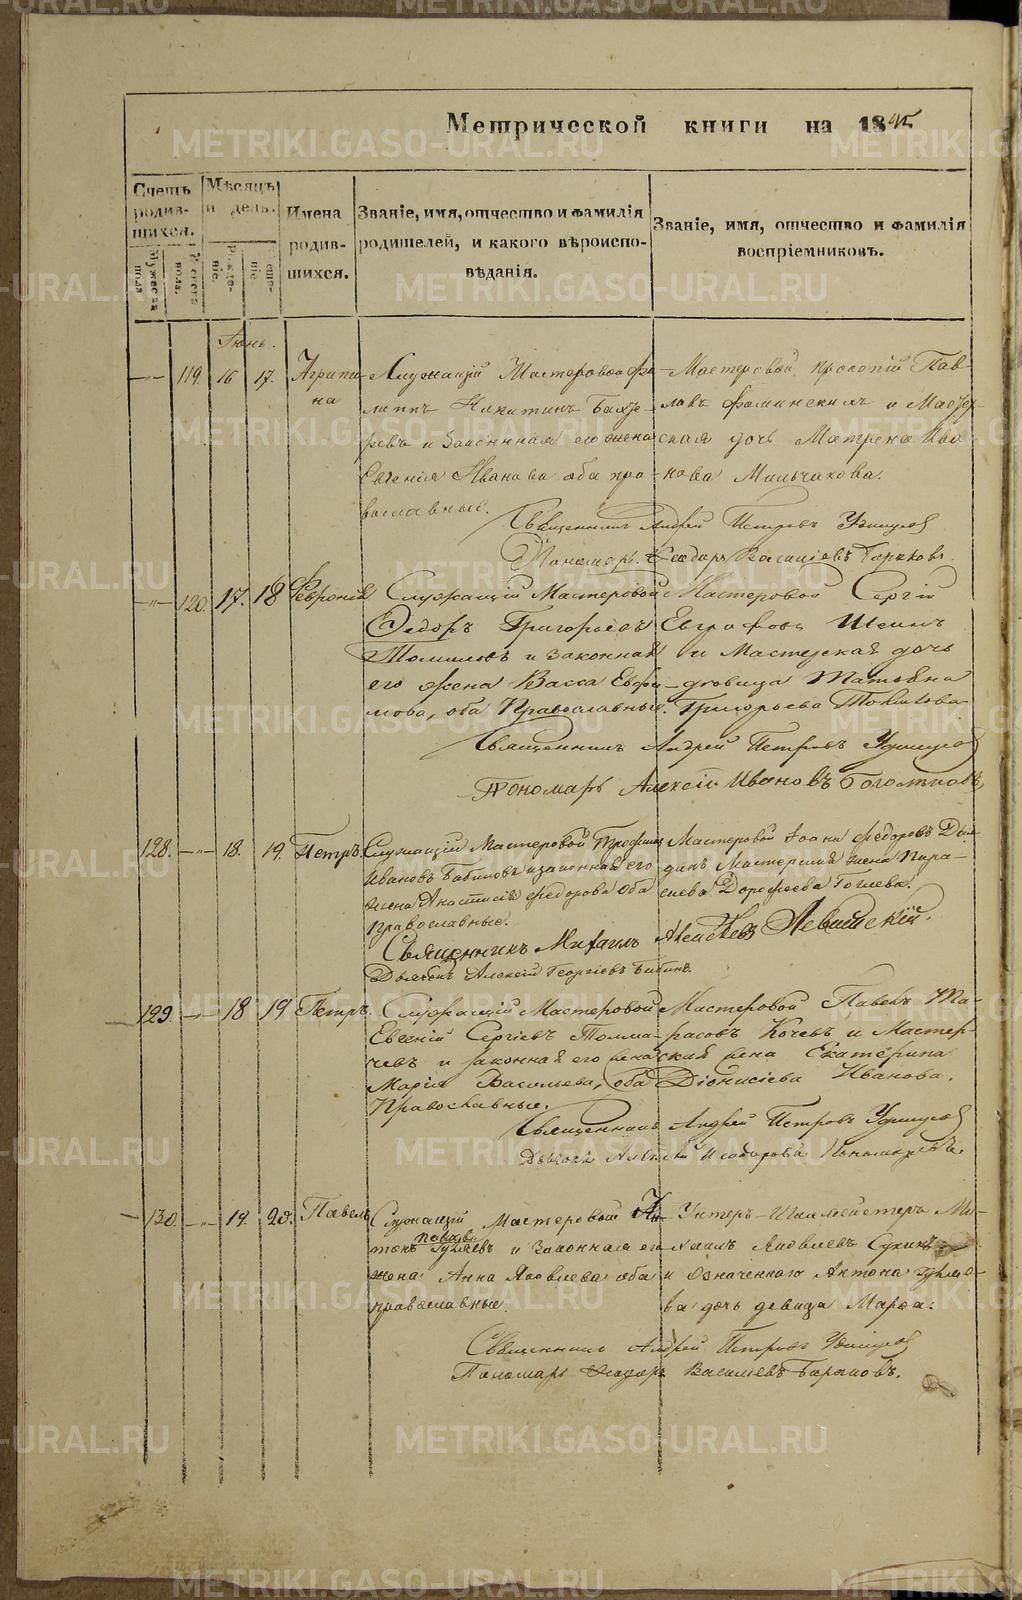 Метрической книги на 1845
Счетъ родив-
шихся.
Мѣсяцъ
и день.
Имена
родив-
шихся.
Званіе, имя, отчество и фамилія
родителей, и какого вѣроиспо-
вѣданія.
Званіе, имя, отчество и фамилія
воспріемниковъ.
Мужеска
пола
Женска
пола.
Рожде-
ніе
Іюнь.
119. 16 17. Агрипи-
на
Служащій Мастеровой Фи-
липъ Никитинъ
и законная его жена
Евгенія Иванова оба пра-
вославные.
Мастеровой Прокопій Пав-
ловъ и Мастер-
ская дочь Матрена Ива-
нова Мильчакова.
Священникъ Андрей Петровъ Удинцов
Пономарь Ѳеодоръ Василіевъ
120. 17. 18 Февронія
Служащій Мастеровой
Ѳедоръ Григорьевъ
Томиловъ и законная
его жена Васса Евфи-
мова, оба Православные.
Мастеровой Сергій
Евграфовъ Шеинъ
и Мастерская дочь
девица Татьяна
Григорьева
Священникъ Андрей Петровъ Удинцов
Пономарь Алексій Ивановъ
128. 18. 19. Петръ.
Служащій Мастеровой Трофимъ
Ивановъ Бабиновъ и законная его
жена Анастасія Федорова оба
православные.
Мастеровой Іоаннъ Федоровъ
Мастерская жена Пара-
скева Дорофеева
Священникъ Михаилъ Алексѣевъ Левитскій.
Дьячекъ Алексій Георгіевъ
129. 18 19 Петръ.
Служащій Мастеровой
Евгеній Сергіевъ Толма-
чевъ и законная его жена
Марія Васильева, оба
Православные.
Мастеровой Павелъ Та-
расовъ Кочевъ и Мастер-
ская жена Екатерина
Діонисіева Иванова.
Священникъ Андрей Петровъ Удинцов
Дьячекъ Алексій Пономаревъ.
130. 19. 20. Павелъ
Служащій Мастеровой Ан-
тонъ и законная его
жена Анна Яковлева оба
православные.
Унтеръ-Шихмейстеръ Ми-
хаилъ Яковлевъ
и означеннаго Антона
дочь девица Марѳа.
Священникъ Андрей Петровъ Удинцов
Пономарь Ѳеодоръ Василіевъ
METRIKI.GASO-URAL.RU